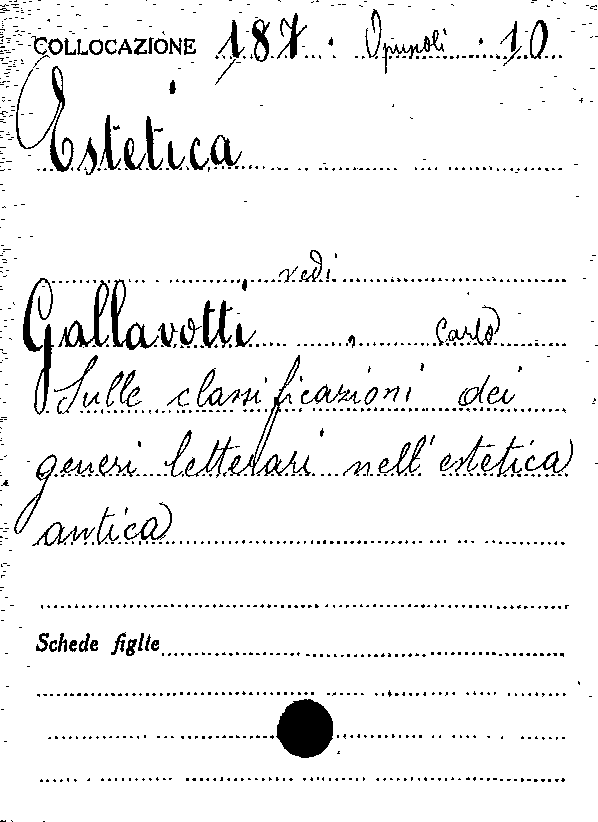 COLLOCAZIONE 187 . Opuscoli . 10
Estetica
vedi
Gallavotti , Carlo
Sulle classificazioni dei
generi letterari nell'estetica
antica
Schede figlie